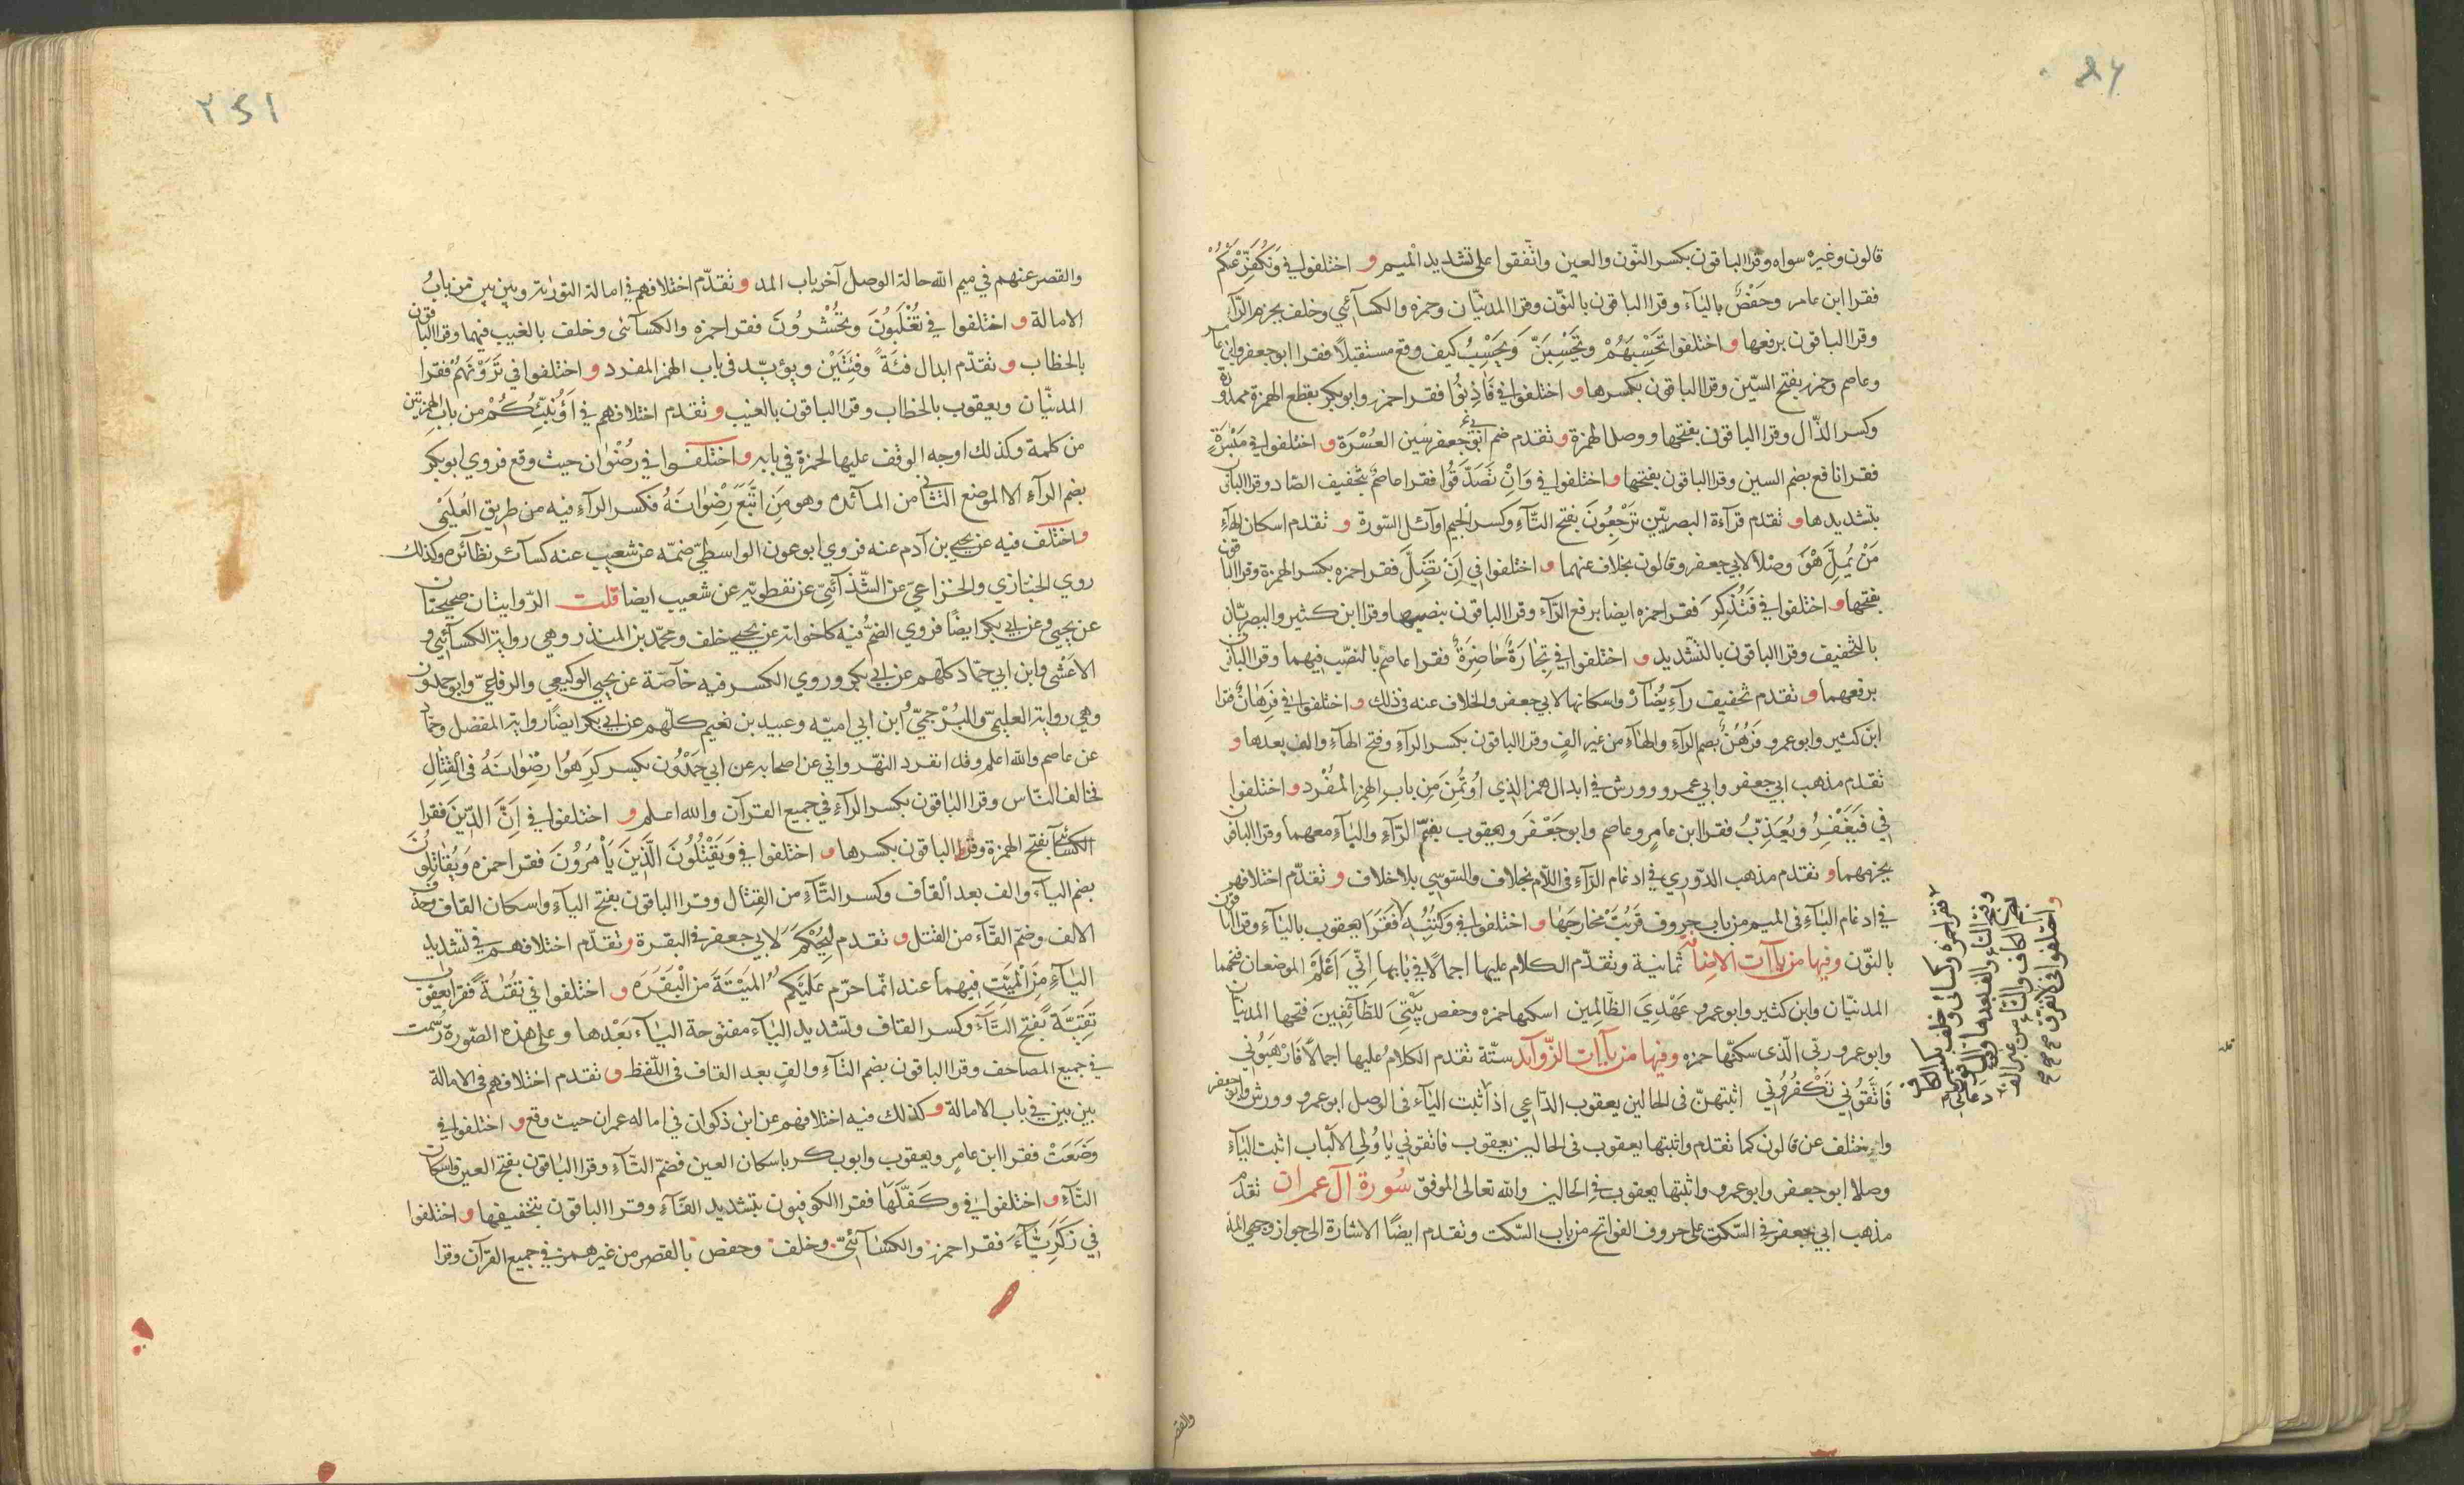 قالون وغيره سواه وقرا الباقون بكسر النّون والعين واتّفقوا على تشديد الميم و اختلفوا في وَنُكَفِّرْ عَنْكُمْ
فقرا ابن عامر وحَفْصٌ بالياء وقرا الباقون بالنّون وقرا المدنيّان وحمزه والكسآئي وخلف بجزم الرّآء
وقرا الباقون برفعها و اختلفوا تَحْسَبَهُمْ وتَحْسِبَنَّ وَيَحْسِبُ كيف وقع مستقبلاً فقرا ابو جعفر وابن عامر
وعاصم وحمزه بفتح السّين وقرا الباقون بكسرها و اختلفوا في فَاْذِنُوا فقرا حمزه وابو بكر بقطع الهمزة ممدوة
وكسر الذّال وقرا الباقون بفتحها ووصل الهمزة و تقدم ضم ابي جعفر سين العُسْرَة و اختلفوا في مَيْسَرَةٍ
فقرا نافع بضم السين وقرا الباقون بفتحها و اختلفوا في وَانْ تَصَدَّقُوا فقرا عاصم بتخفيف الصّاد وقرا الباقون
بتشديدها و تقدم قرآءة البصريّين تَرْجِعُونَ بفتح التّآءِ وكسر الجيم اوآئل السّورة و تقدم اسكان الهآءِ
مَنْ يُمِلَّ هْوَ وصْلاً لابي جعفر وقالون بخلاف عنهما و اختلفوا في اَنْ تَضِلَّ فقرا حمزه بكسر الهمزة وقرا الباقون
بفتحها و اختلفوا في فَتُذَكِّرَ فقرا حمزه ايضا برفع الرّآء وقرا الباقون بنصبها وقرا ابن كثير والبصريّان
بالتّخفيف وقرا الباقون بالتّشديد و اختلفوا في تِجَارَةً حَاضِرَةً فقرا عاصم بالنصّب فيهما وقرا الباقون
برفعهما و تقدم تخفيف رآءِ يُضَآرْ واسكانها لابي جعفر والخلاف عنه في ذلك و اختلفوا في فَرِهَانٌ فقرا
ابن كثير وابو عمرو فَرُهُنٌ بضم الرآءِ والهآءِ من غير الفٍ وقرا الباقون بكسر الرآءِ وفتح الهآءِ والف بعدها و
تقدم مذهب ابي جعفر وابي عمرو وورش في ابدال همز الذي اوْتُمِنَ مِن بابِ الهمز المُفْرد و اختلفوا
في فَيَغْفِرُ ويُعَذِّبُ فقرا ابن عامرٍ وعاصم وابو جَعْفَر ويعقوب بضمّ الرّآءِ واليآءِ معهما وقرا الباقون
بجزمهما و تقدم مذهب الدّوري في ادغام الرّآءِ في اللّام بخلاف والسّوسي بلا خلاف و تقدّم اختلافهم
في ادغام البآءِ في الميم من باب حروف قَرُبَتْ مخارجها و اختلفوا في وَكُتُبِه لا فَقَرَا يعقوب باليآءِ وقرا الباقون
بالنّون وفيها من يآآت الاضافة ثمانية وتقدّم الكلام عليها اجمالًا في بابها اِنّي اَعْلَمُ الموضعان فتحهما
المدنيّان وابن كثير وابو عمرو عَهْدِيَ الظّالِمين اسكنها حمزه وحفص بَيْتِيَ للطّآئفينَ فتحها المدنيّان
وابو عمرو ربّي الّذي سكنّها حمزه وفيها من يآآت الزّوآئد ستّة تقدم الكلامُ عليها اجمالًا فَارْهَبُوني
فَاتَّقُوني تَكْفُرُوني اثبتهنّ في الحالين يعقوب الدّاعي اذا اثبت اليآء في الوصل ابو عمرو وورش وابو جعفر
واختلف عن قالون كما تقدم واثبتها يعقوب في الحالين يعقوب فاتقوني ياوُلي الالْباب اثبت اليآءَ
وصلا ابو جعفر وابو عمرو واثبتها يعقوب في الحالين والله تعالى الموفق سُورة آل عمران تقدّم
مذهب ابي جعفر في السّكت على حروف الفواتح من باب السّكت وتقدم ايضًا الاشارة الى جواز وجهي المدّ
والقصر
واختلفوا في لا نفرق
دعاني
والقصر عنهم في ميم الله حالة الوصل آخر باب المد و تقدّم اختلافهم في امالة التورٰية وبين بين من بابُ
الامالة و اختلفوا في تُغْلَبُونَ وتُحْشَرُونَ فقرا حمزه والكسآئى وخلف بالغيب فيهما وقرا الباقون
بالخطاب و تقدّم ابدال فئَةً وفِئَتَيْن ويؤيّد في باب الهمز المفرد و اختلفوا في تَرَوْنَهُمْ فقرا
المدنيّان ويعقوب بالخطاب وقرا الباقون بالغيب و تقدم اختلافهم في اَؤُنَبِّئُكُمْ من باب الهمزتين
من كلمة وكذلك اوجه الوقف عليها لحمزة في بابه و اختلفوا في رُضْوان حيث وقع فروي ابو بكر
بضم الرآءِ الا الموضع الثّاني من المآئدة وهو مَنِ اتَّبَعَ رِضْوانَهُ فكسر الرآءِ فيه من طريق العُلَيْمى
و اختلف فيه عن يحيى بن آدم عنه فروي ابو عون الواسطيّ ضمّه عن شعيب عنه كسآئر نظآئره وكذلك
روي الخبّازي والخزاعيّ عن الشّذآئيّ عن نفطويْه عن شعيب ايضا قلت الرّوايتان صحيحتان
عن يحيى وعن ابي بكر ايضًا فروي الضمَّ فيه كاخواته عن يحيى خلف ومحمّد بن المنذر وهي رواية الكسآئيّ و
الاعْشى وابن ابي حمّاد كلّهم عن ابي بكر وروي الكسر فيه خآصّة عن يحيى الوكيعي والرفاعيّ وابو حمدون
وهي رواية العليميّ والبُرْجميّ وابن ابي اميّه وعبيد بن نعيم كلّهم عن ابي بكر ايضًا رواية المفضل وحمّاد
عن عاصم والله اعلم وقد انفرد النّهرواني عن اصحابه عن ابي حَمْدُون بكسر كَرِهوُا رِضْوانَهُ في القِتالِ
فخالف النّاس وقرا الباقون بكسر الرآءِ في جميع القرآن والله اعلم و اختلفوا في اَنَّ الدّينَ فقرا
الكسآئى بفتح الهمزة وقرا الباقون بكسرها و اختلفوا في وَيَقْتُلُونَ الَّذينَ يَأْمُرُوْنَ فقرا حمزه وَيُقَاتِلُونَ
بضم اليآءِ والف بعد القاف وكسر التّآءِ من القتال وقرا الباقون بفتح اليآءِ واسكان القاف وحذف
الالف وضمّ التّآء من القتل و تقدم لِيُحْكَمَ لابي جعفر في البقرة و تقدّم اختلافهم في تشديد
اليآءِ مِنَ الْميِّت فيهما عند انّما حرّم عَلَيْكم الميْتَةَ من الْبَقَرَه و اختلفوا في تُقٰىةً فقرا يعقوب
تَقِيَّةً بفتح التّآء وكسر القاف وتشديد اليآء مفتوحة اليآء بَعْدها وعلى هذه الصّورة رُسمت
في جميع المصاحف وقرا الباقون بضم التآءِ والفٍ بعد القاف في اللّفظ و تقدم اختلافهم في الامالة
بين بين في باب الامالة و كذلك فيه اختلافهم عن ابن ذكوان في اماله عمران حيث وقع و اختلفوا في
وضَعَتْ فقرا ابن عامرٍ ويعقوب وابو بكر باسكان العين فضمّ التّآءِ وقرا الباقون بفتح العين واسكان
التّآءِ و اختلفوا في وكَفّلَها فقرا الكوفيون بتشديد الفآءِ وقرا الباقون بتخفيفها و اختلفوا
في زَكَرِيّآءَ فقرا حمزه والكسآئيّ وخلف وحفص بالقصر من غير همز في جميع القرآن وقرا